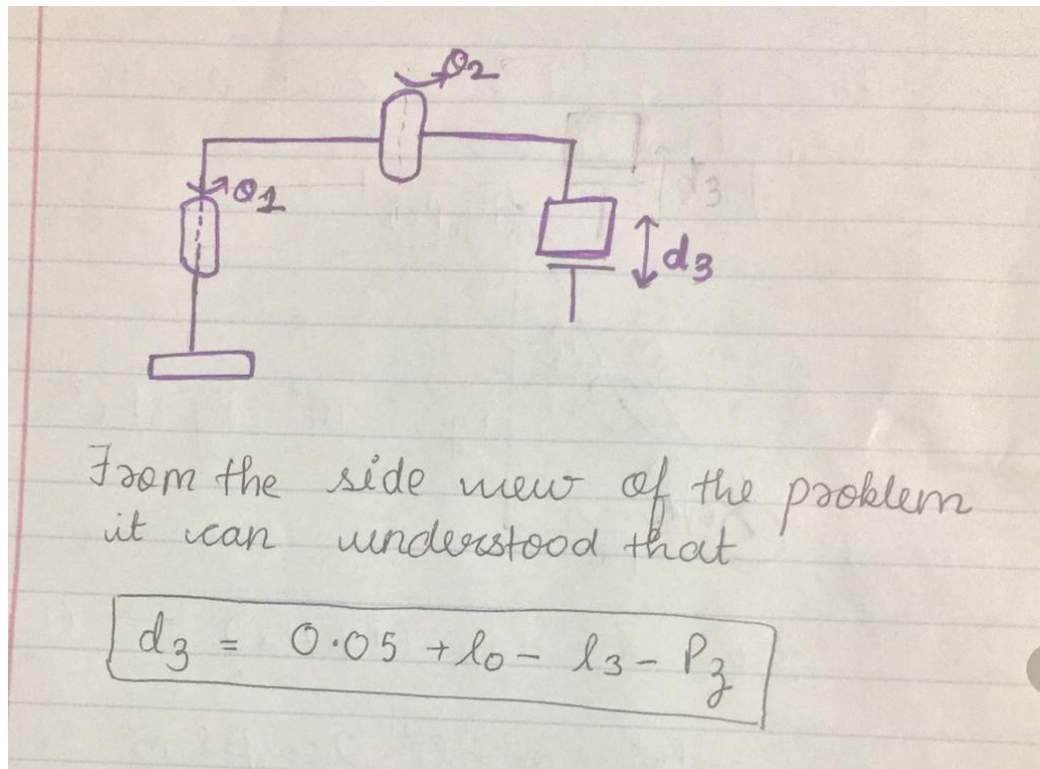 θ2
θ1
d3
From the side view of the problem
it can understood that
d3 = 0.05 + l0 - l3 - Pz